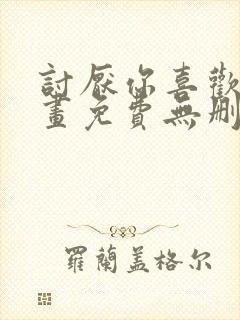 討厭你喜歡
畫免費無刪
羅蘭蓋格尔